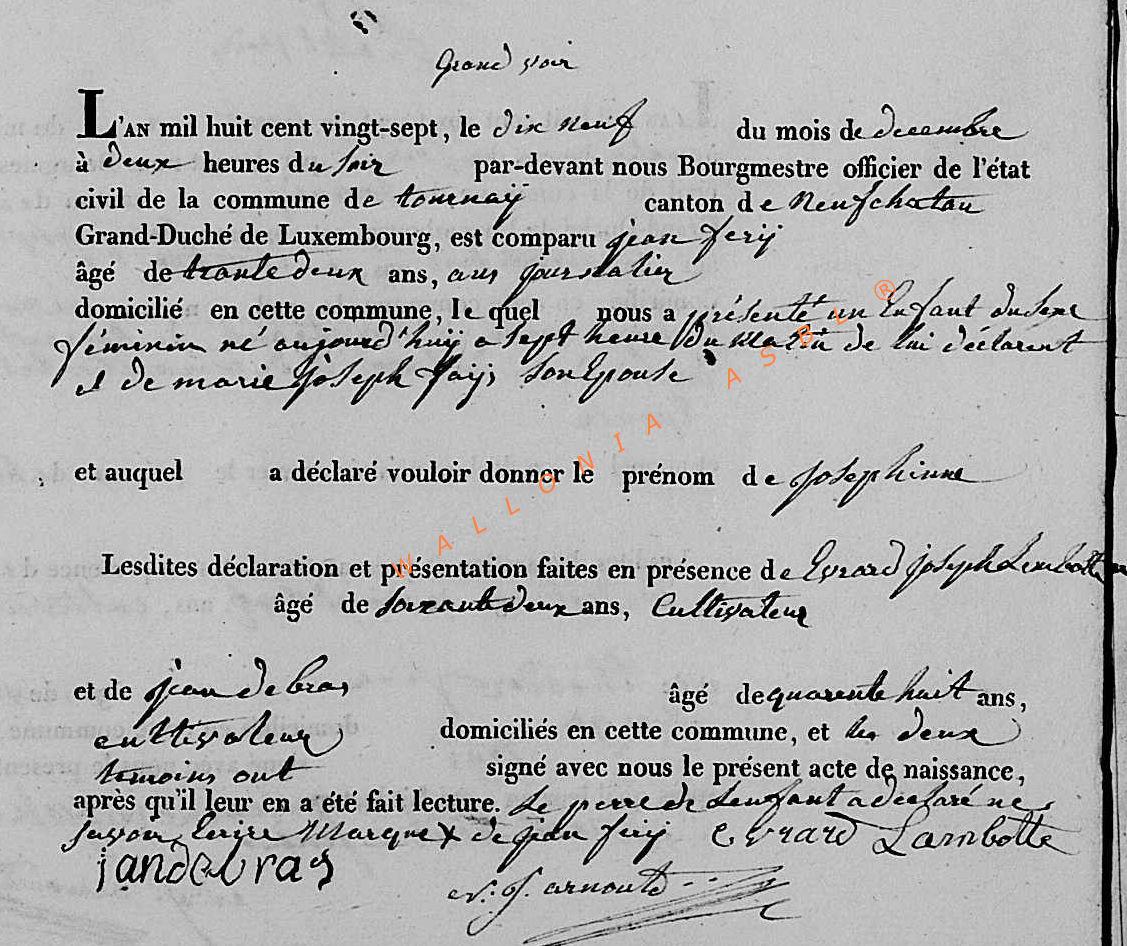 Grand voir
L'AN mil huit cent vingt-sept, le dix neuf du mois de decembre
à deux heures du soir par-devant nous Bourgmestre officier de l'état
civil de la commune de tournaÿ canton de Neufchatau
Grand-Duché de Luxembourg, est comparu jean ferij
âgé de trante deux ans, ans journalier
domicilié en cette commune, le quel nous a présenté un Enfant du Sexe
féminin né aujourd'huij a sept heure du Matin de lui déclarent
et de marie joseph faijs son Epouse
et auquel a déclaré vouloir donner le prénom de josephinne
Lesdites déclaration et présentation faites en présence de Evrard joseph Lambotte
âgé de soixante deux ans, Cultivateur
et de jean debras âgé de quarente huit ans,
cultivateur domiciliés en cette commune, et les deux
temoins ont signé avec nous le présent acte de naissance,
après qu'il leur en a été fait lecture. Le perre de Lenfant a declaré ne
savoir Ecrire Marque X de jean ferij Evrard Lambotte
jandebras
N: J. arnould
WALLONIA ASBL ®